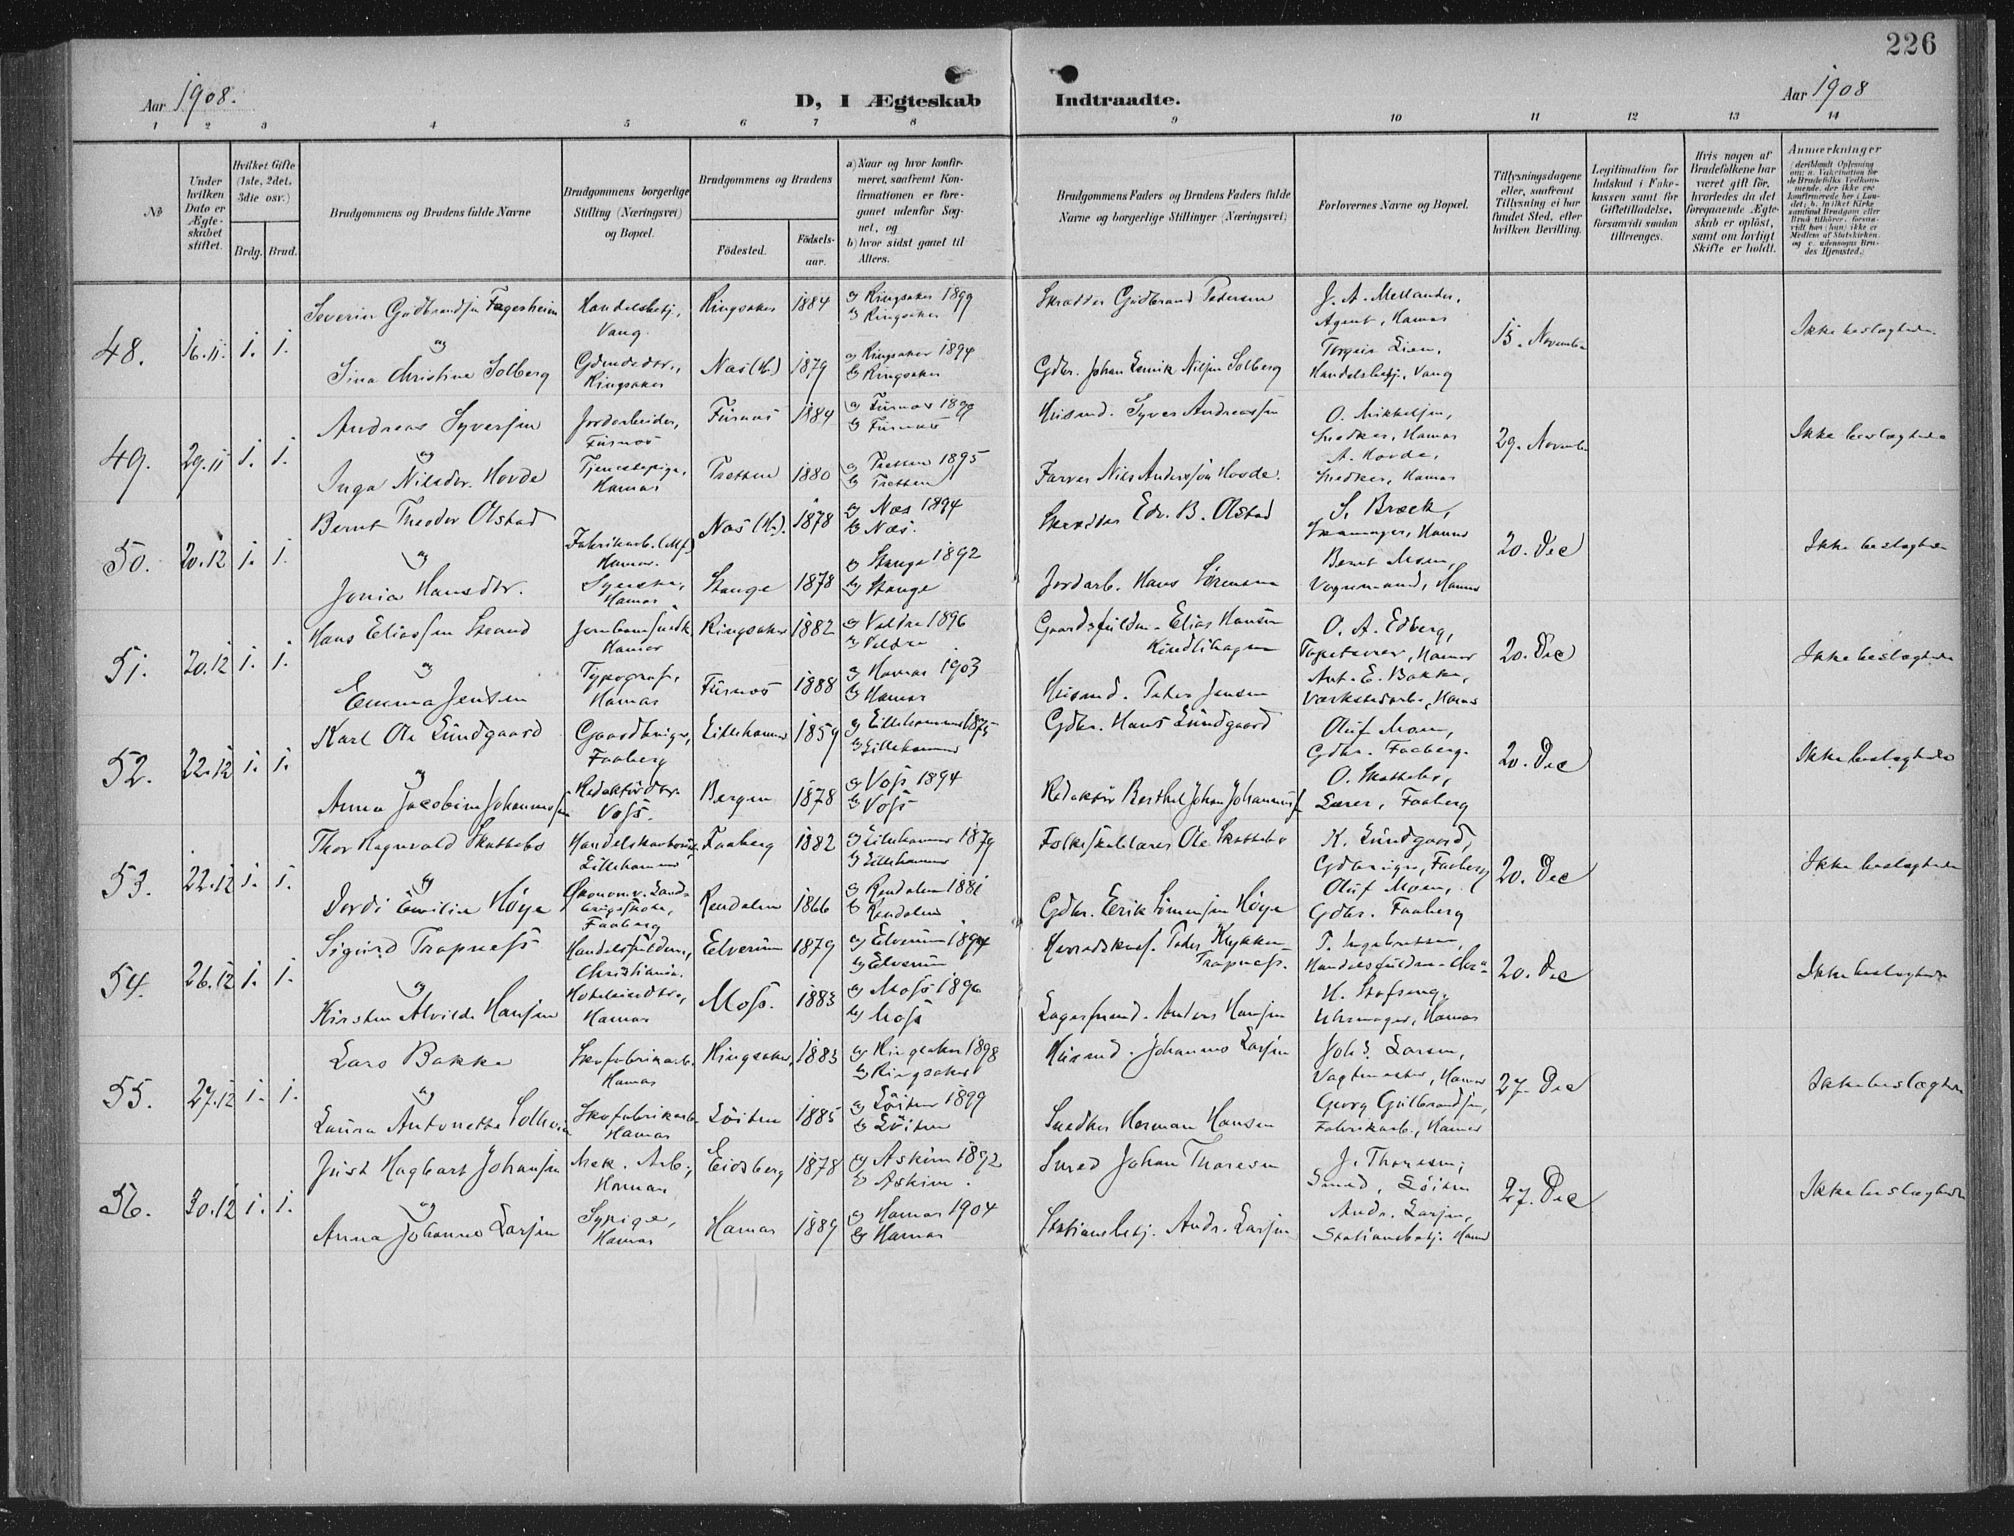 226
Aar 1908.
D, I Ægteskab Indtraadte.
Aar 1908
1 2 3 4 5 6 7 8 9 10 11 12 13 14
No
Under hvilken Dato er Ægteskabet stiftet.
Hvilket Gifte (1ste, 2det, 3die osv.)
Brdg. Brud.
Brudgommens og Brudens fulde Navne
Brudgommens borgerlige Stilling (Næringsvei) og Bopæl.
Brudgommens og Brudens
Födested.
Födselsaar.
a) Naar og hvor konfirmeret, saafremt Konfirmationen er foregaaet udenfor Sognet, og
b) hvor sidst gaaet til Alters.
Brudgommens Faders og Brudens Faders fulde Navne og borgerlige Stillinger (Næringsvei)
Forlovernes Navne og Bopæl.
Tillysningsdagene eller, saafremt Tillysning ei har fundet Sted, efter hvilken Bevilling.
Legitimation for Indskud i Enkekassen samt for Giftetilladelse, forsaavidt saadan tiltrænges.
Hvis nogen af Brudefolkene har været gift för, hvorledes da det foregaaende Ægteskab er oplöst, samt om lovligt Skifte er holdt.
Anmærkninger
48. 16.11. 1. 1.
Severin Gudbrandsen Fagesheim
Handelsbetj., Vang.
Ringsaker 1884
a) Ringsaker 1899
b) Ringsaker
Skrædder Gudbrand Pedersen
J. A. Mellander,
Agent, Hamar
15. November
Ikke beslægtede
og
Sina Christine Solberg
Gdmdsdtr., Ringsaker
Næs (H.) 1879
a) Ringsaker 1894
b) Ringsaker
Gdbr. Johan Lauvik Nilsen Solberg
Torgeir Lien,
Handelsbetj., Vang
49. 29.11 1. 1.
Andreas Syversen
Jordarbeider, Furnæs
Furnæs 1884
a) Furnæs 1899
b) Furnæs
Husmd. Syver Andreassen
O. Mikkelsen,
Snedker, Hamar
29. November
Ikke beslægtede
og
Inga Nilsdtr. Hovde
Tjenestepige, Hamar
Tretten 1880
a) Tretten 1895
b) Tretten
Farver Nils Anderssøn Hovde.
A. Hovde,
Snedker, Hamar
50. 20.12 1. 1.
Bernt Theodor Olstad
Fabrikarb. (M.f.) Hamar.
Næs (H.). 1878
a) Næs 1894
b) Næs.
Skrædder Edv. B. Olstad
S. Bræck,
Hamar
20. Dec
Ikke beslægtede
og
Jonia Hansdtr.
Syerske, Hamar
Stange 1878
a) Stange 1892
b) Stange
Jordarb. Hans Sørensen
Bernt Moen,
Vognmand, Hamar
51. 20.12 1. 1.
Hans Eliassen Strand
Jernbanesnedk. Hamar
Ringsaker 1882
a) Veldre 1896
b) Veldre
Gaardsfuldm. Elias Hansen
Kindlihagen
O. A. Edberg,
Tapetserer, Hamar
20. Dec
Ikke beslægtede
og
Emma Jensen
Typograf, Hamar
Furnæs 1888
a) Hamar 1903
b) Hamar
Husmd. Peder Jensen
Ant. E. Bakke,
Værkstedarb., Hamar
52. 22.12 1. 1.
Karl Ole Lundgaard
Gaardbruger, Faaberg
Lillehammer 1859
a) Lillehammer 1875
b) Lillehammer
Gdbr. Hans Lundgaard
Oluf Moen,
Gdbr. Faaberg.
20. Dec
Ikke beslægtede
og
Anna Jacobine Johannessen
Redaktørdtr. Voss.
Bergen 1878
a) Voss 1894
b) Voss
Redaktør Berthel Johan Johannessen
O. Skattebo,
Lærer, Faaberg
53. 22.12 1. 1.
Thor Ragnvald Skattebo
Lillehammer
Faaberg 1882
a) Lillehammer 1879
b) Lillehammer
Folkeskolelærer Ole Skattebo
K. Lundgaard,
Gdbruger, Faaberg
20. Dec
Ikke beslægtede
og
Dordi Emilie Høye
Faaberg
Rendalen 1866
a) Rendalen 1881
b) Rendalen
Gdbr. Erik Simensen Høye
Oluf Moen,
Gdbr. Faaberg
54. 26.12 1. 1.
Sigurd Trapness
Handelsfuldm., Christiania.
Elverum 1879
a) Elverum 1894
b) Elverum
Herredskas. Peder Kykken
Trapness.
P. Ingebretsen,
Handelsfuldm. Chr.a
20. Dec
Ikke beslægtede
og
Kirsten Alvilde Hansen
Hamar
Moss. 1883
a) Moss 1896
b) Moss
Lagermand. Anders Hansen
H. Stafseng,
Uhrmager, Hamar
55. 27.12 1. 1.
Lars Bakke
Skofabrikarb. Hamar
Ringsaker, 1883
a) Ringsaker 1898
b) Ringsaker
Husmd. Johannes Larsen
Johs. Larsen,
Vagtmester, Hamar
27. Dec
Ikke beslægtede
og
Laura Antonette Solheim
Skofabrikarb. Hamar
Löiten 1885
a) Löiten 1899
b) Löiten
Snedker Herman Hansen
Georg Gulbrandsen,
Fabrikarb., Hamar
56. 30.12 1. 1.
Just Hagbart Johansen
Mek. Arb., Hamar
Eidsberg 1878
a) Askim 1892
b) Askim.
Smed Johan Thoresen
J. Thoresen,
Smed, Löiten
27. Dec
Ikke beslægtede
og
Anna Johanne Larsen
Sypige, Hamar
Hamar 1889
a) Hamar 1904
b) Hamar
Stationsbetj. Andr. Larsen
Andr. Larsen,
Stationsbetj. Hamar